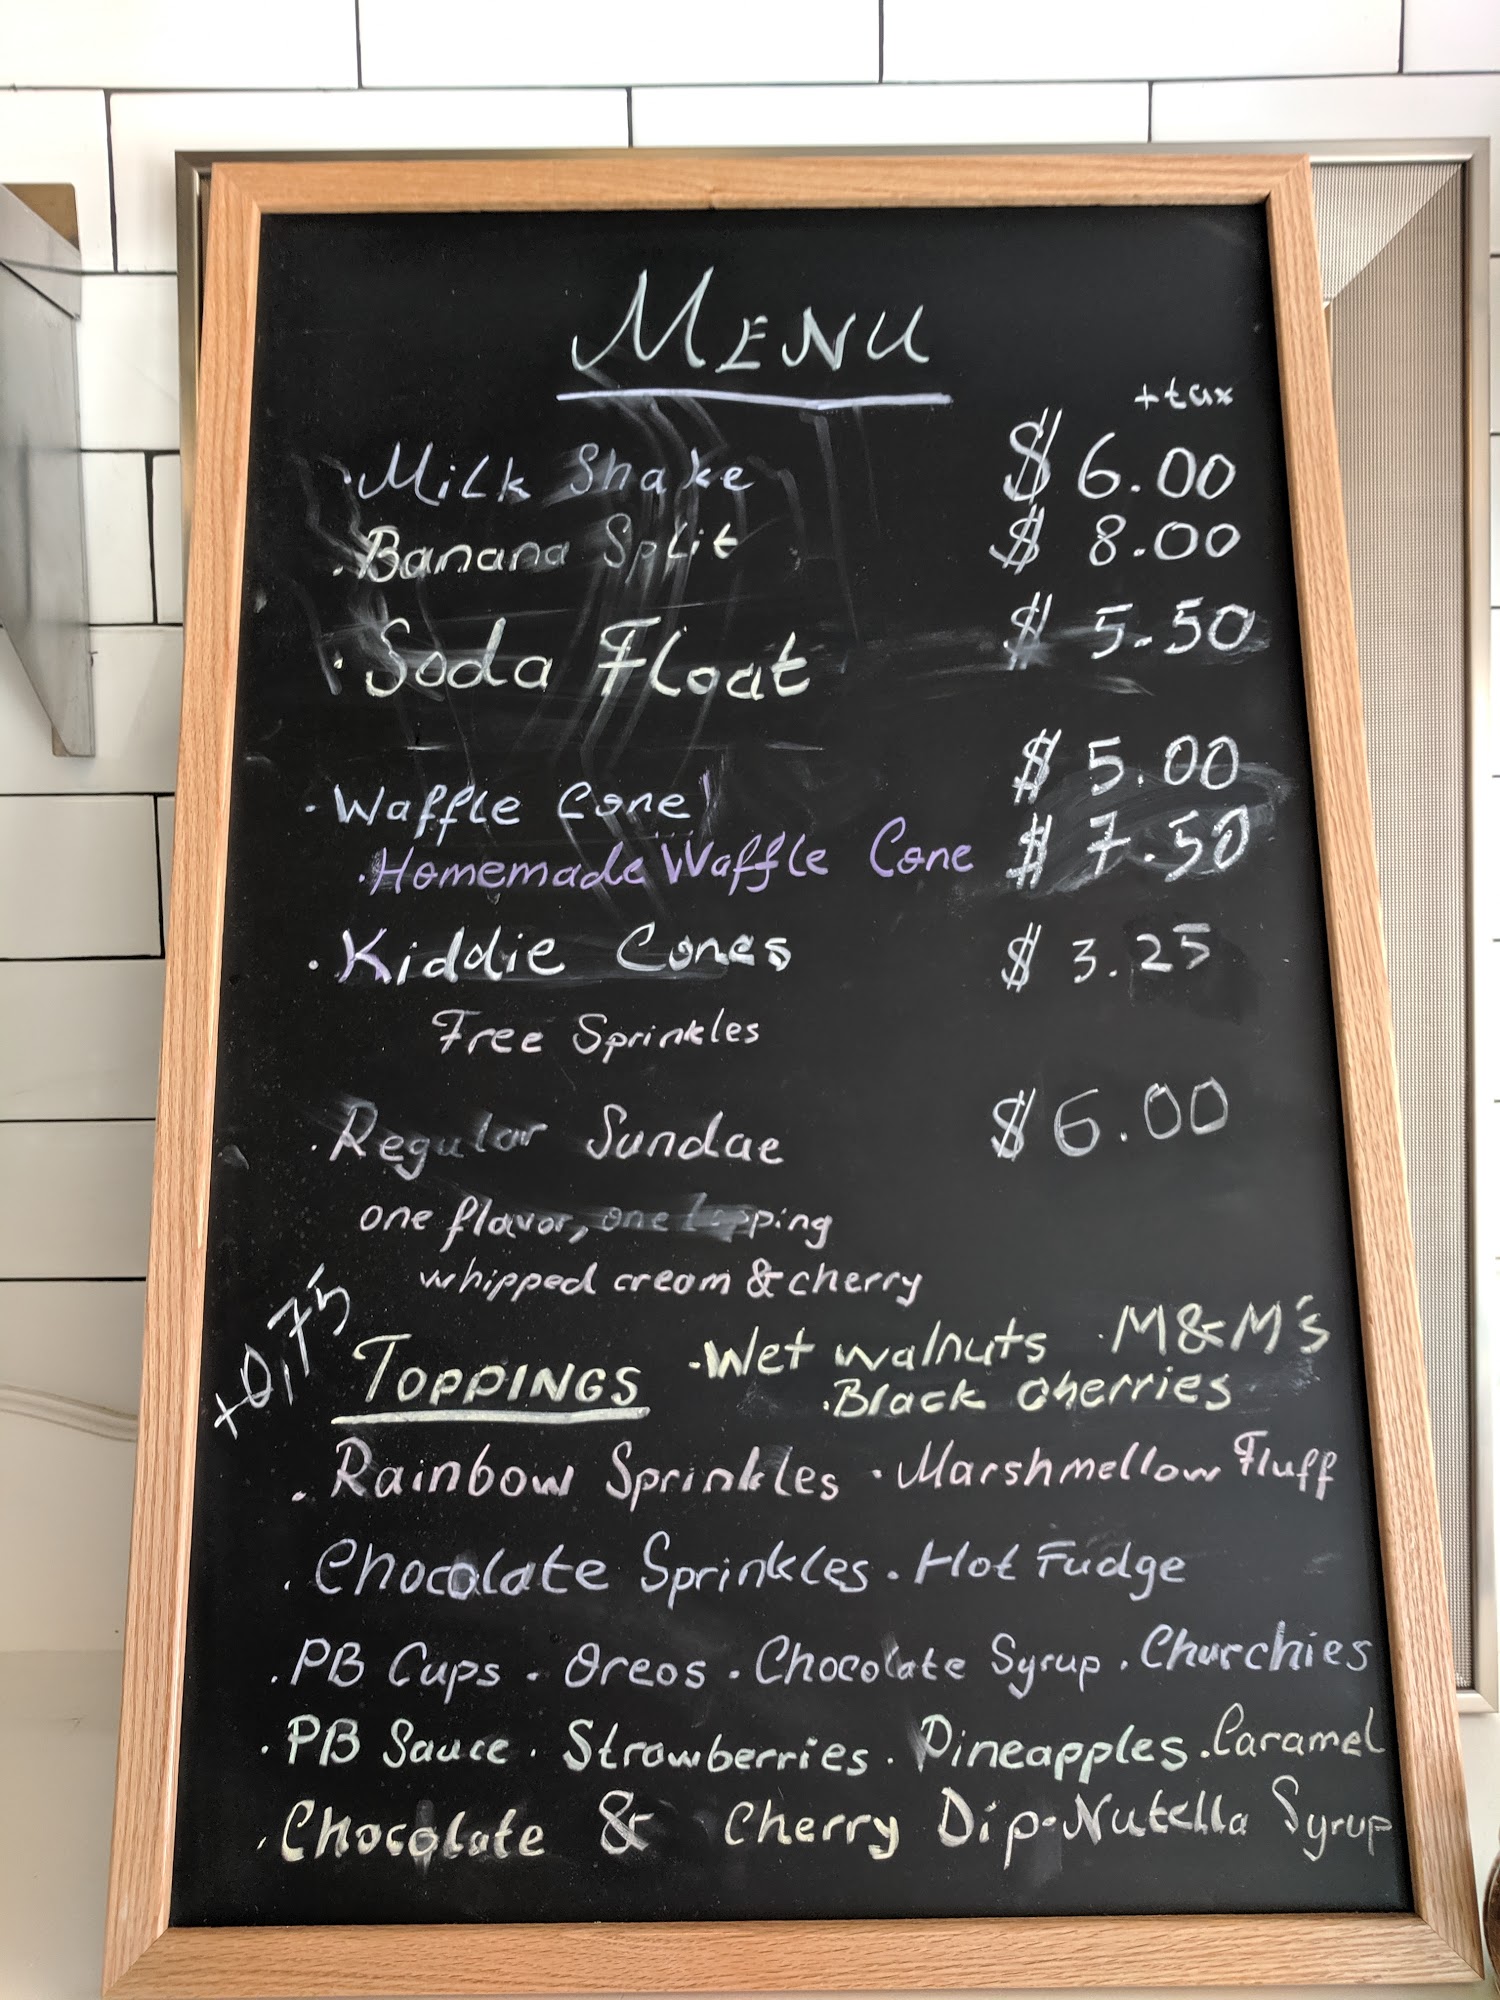 MENU
+tax
· Milk Shake $ 6.00
· Banana Split $ 8.00
· Soda Float $ 5.50
· Waffle Cone $ 5.00
· Homemade Waffle Cone $ 7.50
· Kiddie Cones $ 3.25
Free Sprinkles
· Regular Sundae $ 6.00
one flavor, one topping
whipped cream & cherry
+0,75 TOPPINGS · Wet walnuts · M&M's
· Black cherries
· Rainbow Sprinkles · Marshmellow Fluff
· Chocolate Sprinkles · Hot Fudge
· PB Cups · Oreos · Chocolate Syrup · Churchies
· PB Sauce · Strawberries · Pineapples · Caramel
· Chocolate & Cherry Dip · Nutella Syrup